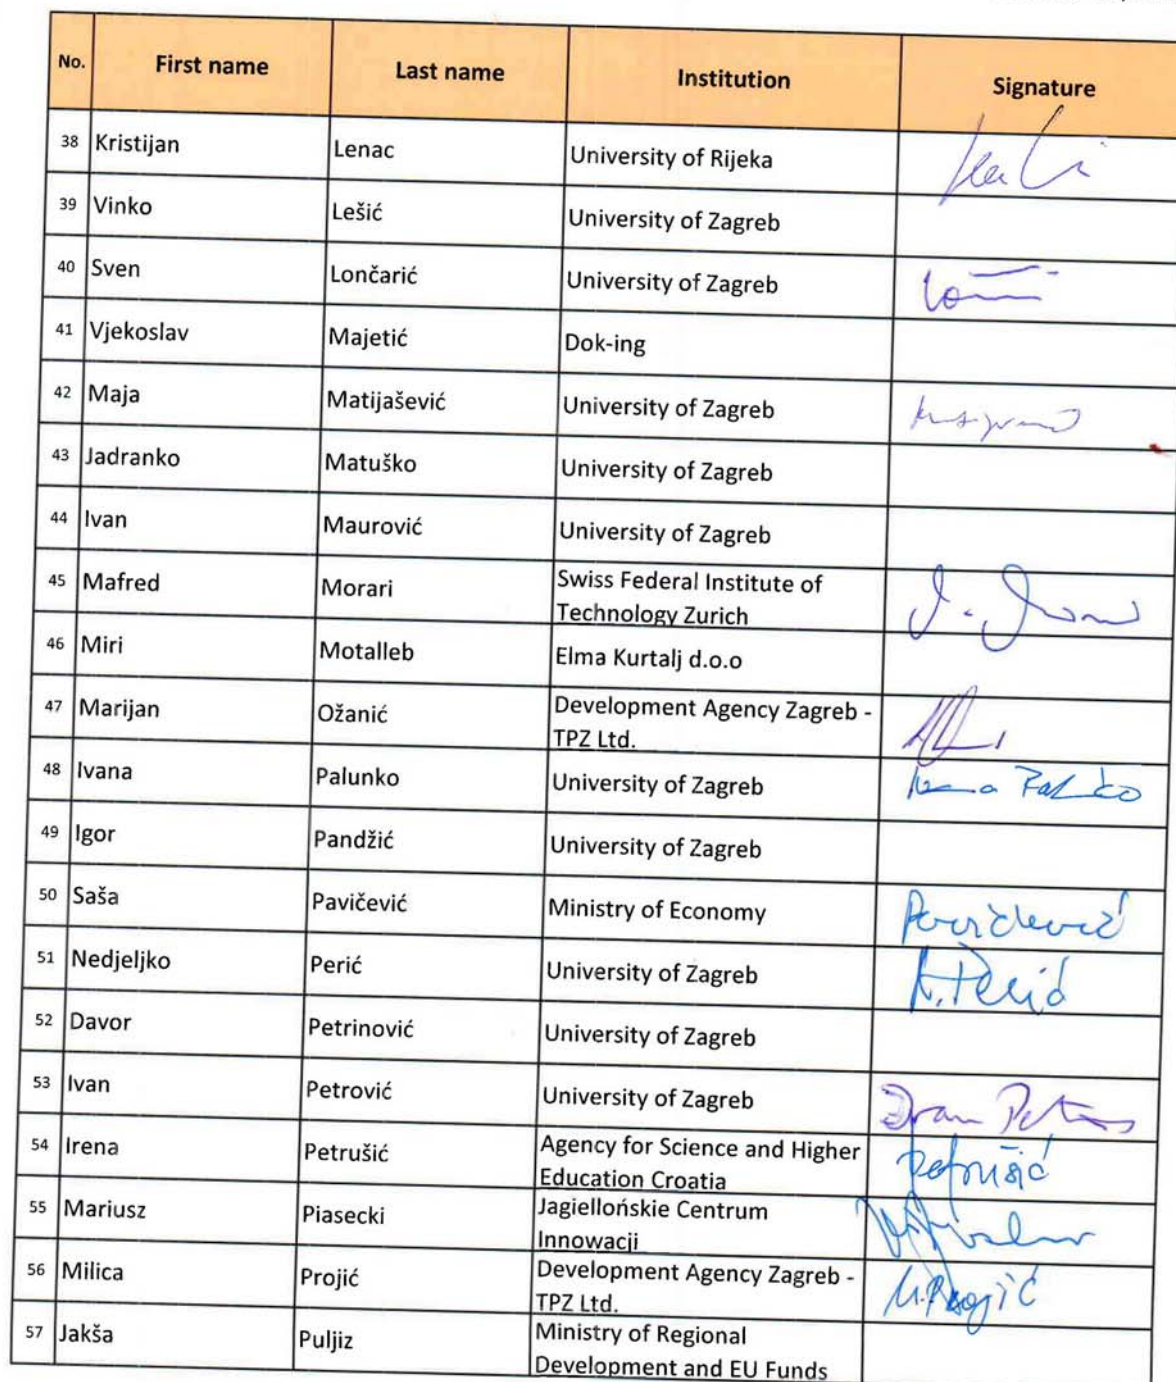 No. First name Last name Institution Signature
38 Kristijan Lenac University of Rijeka
39 Vinko Lešić University of Zagreb
40 Sven Lončarić University of Zagreb
41 Vjekoslav Majetić Dok-ing
42 Maja Matijašević University of Zagreb
43 Jadranko Matuško University of Zagreb
44 Ivan Maurović University of Zagreb
45 Mafred Morari Swiss Federal Institute of
Technology Zurich
46 Miri Motalleb Elma Kurtalj d.o.o
47 Marijan Ožanić Development Agency Zagreb -
TPZ Ltd.
48 Ivana Palunko University of Zagreb
49 Igor Pandžić University of Zagreb
50 Saša Pavičević Ministry of Economy Pavičević
51 Nedjeljko Perić University of Zagreb N. Perić
52 Davor Petrinović University of Zagreb
53 Ivan Petrović University of Zagreb Ivan
54 Irena Petrušić Agency for Science and Higher Petrušić
Education Croatia
55 Mariusz Piasecki Jagiellońskie Centrum
Innowacji
56 Milica Projić Development Agency Zagreb - M. Projić
TPZ Ltd.
57 Jakša Puljiz Ministry of Regional
Development and EU Funds